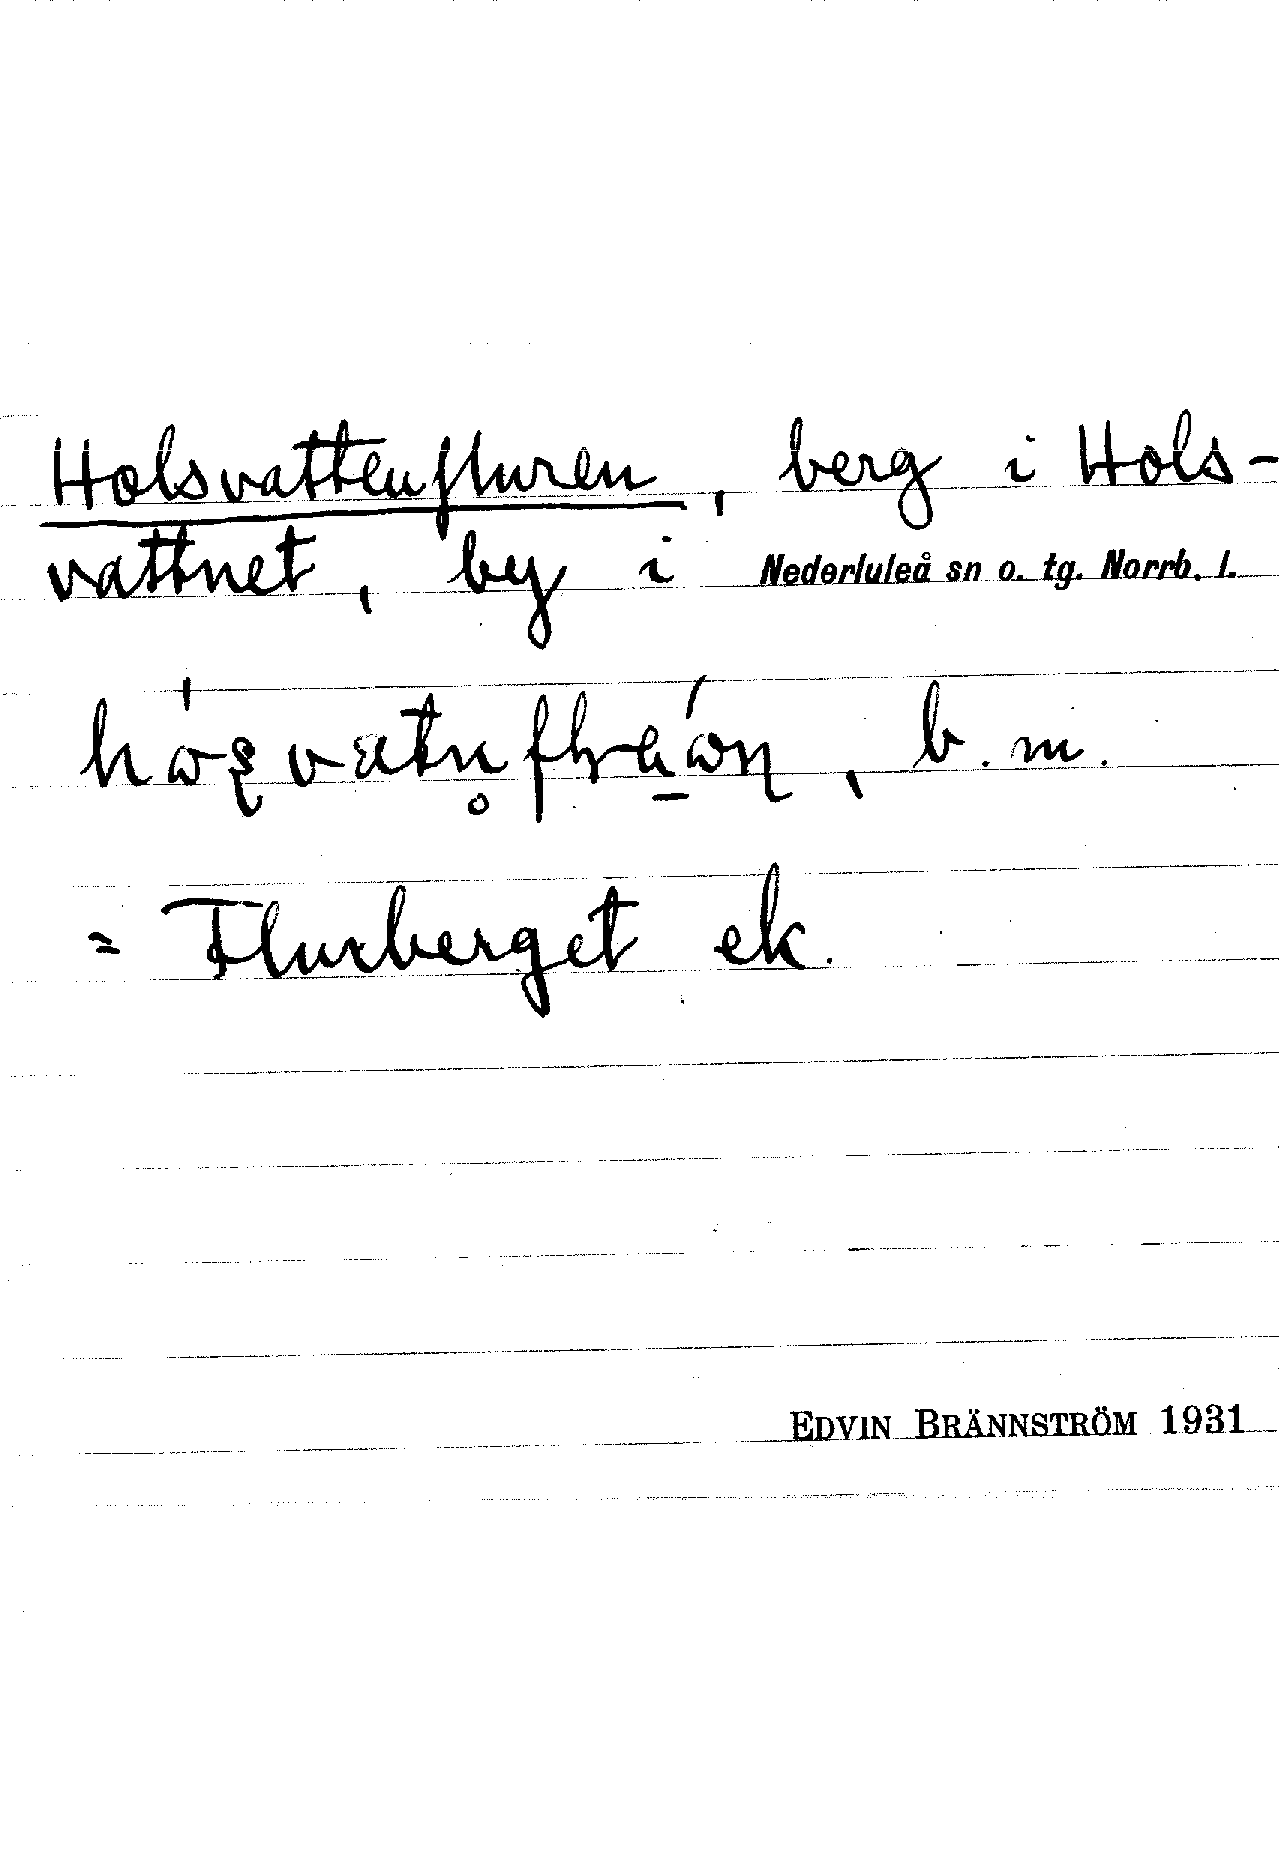 Holsvattenfluren, berg i Hols-
vattnet, by i Nederluleå sn o. tg. Norrb. l.
b. m.
= Flurberget ek.
EDVIN BRÄNNSTRÖM 1931